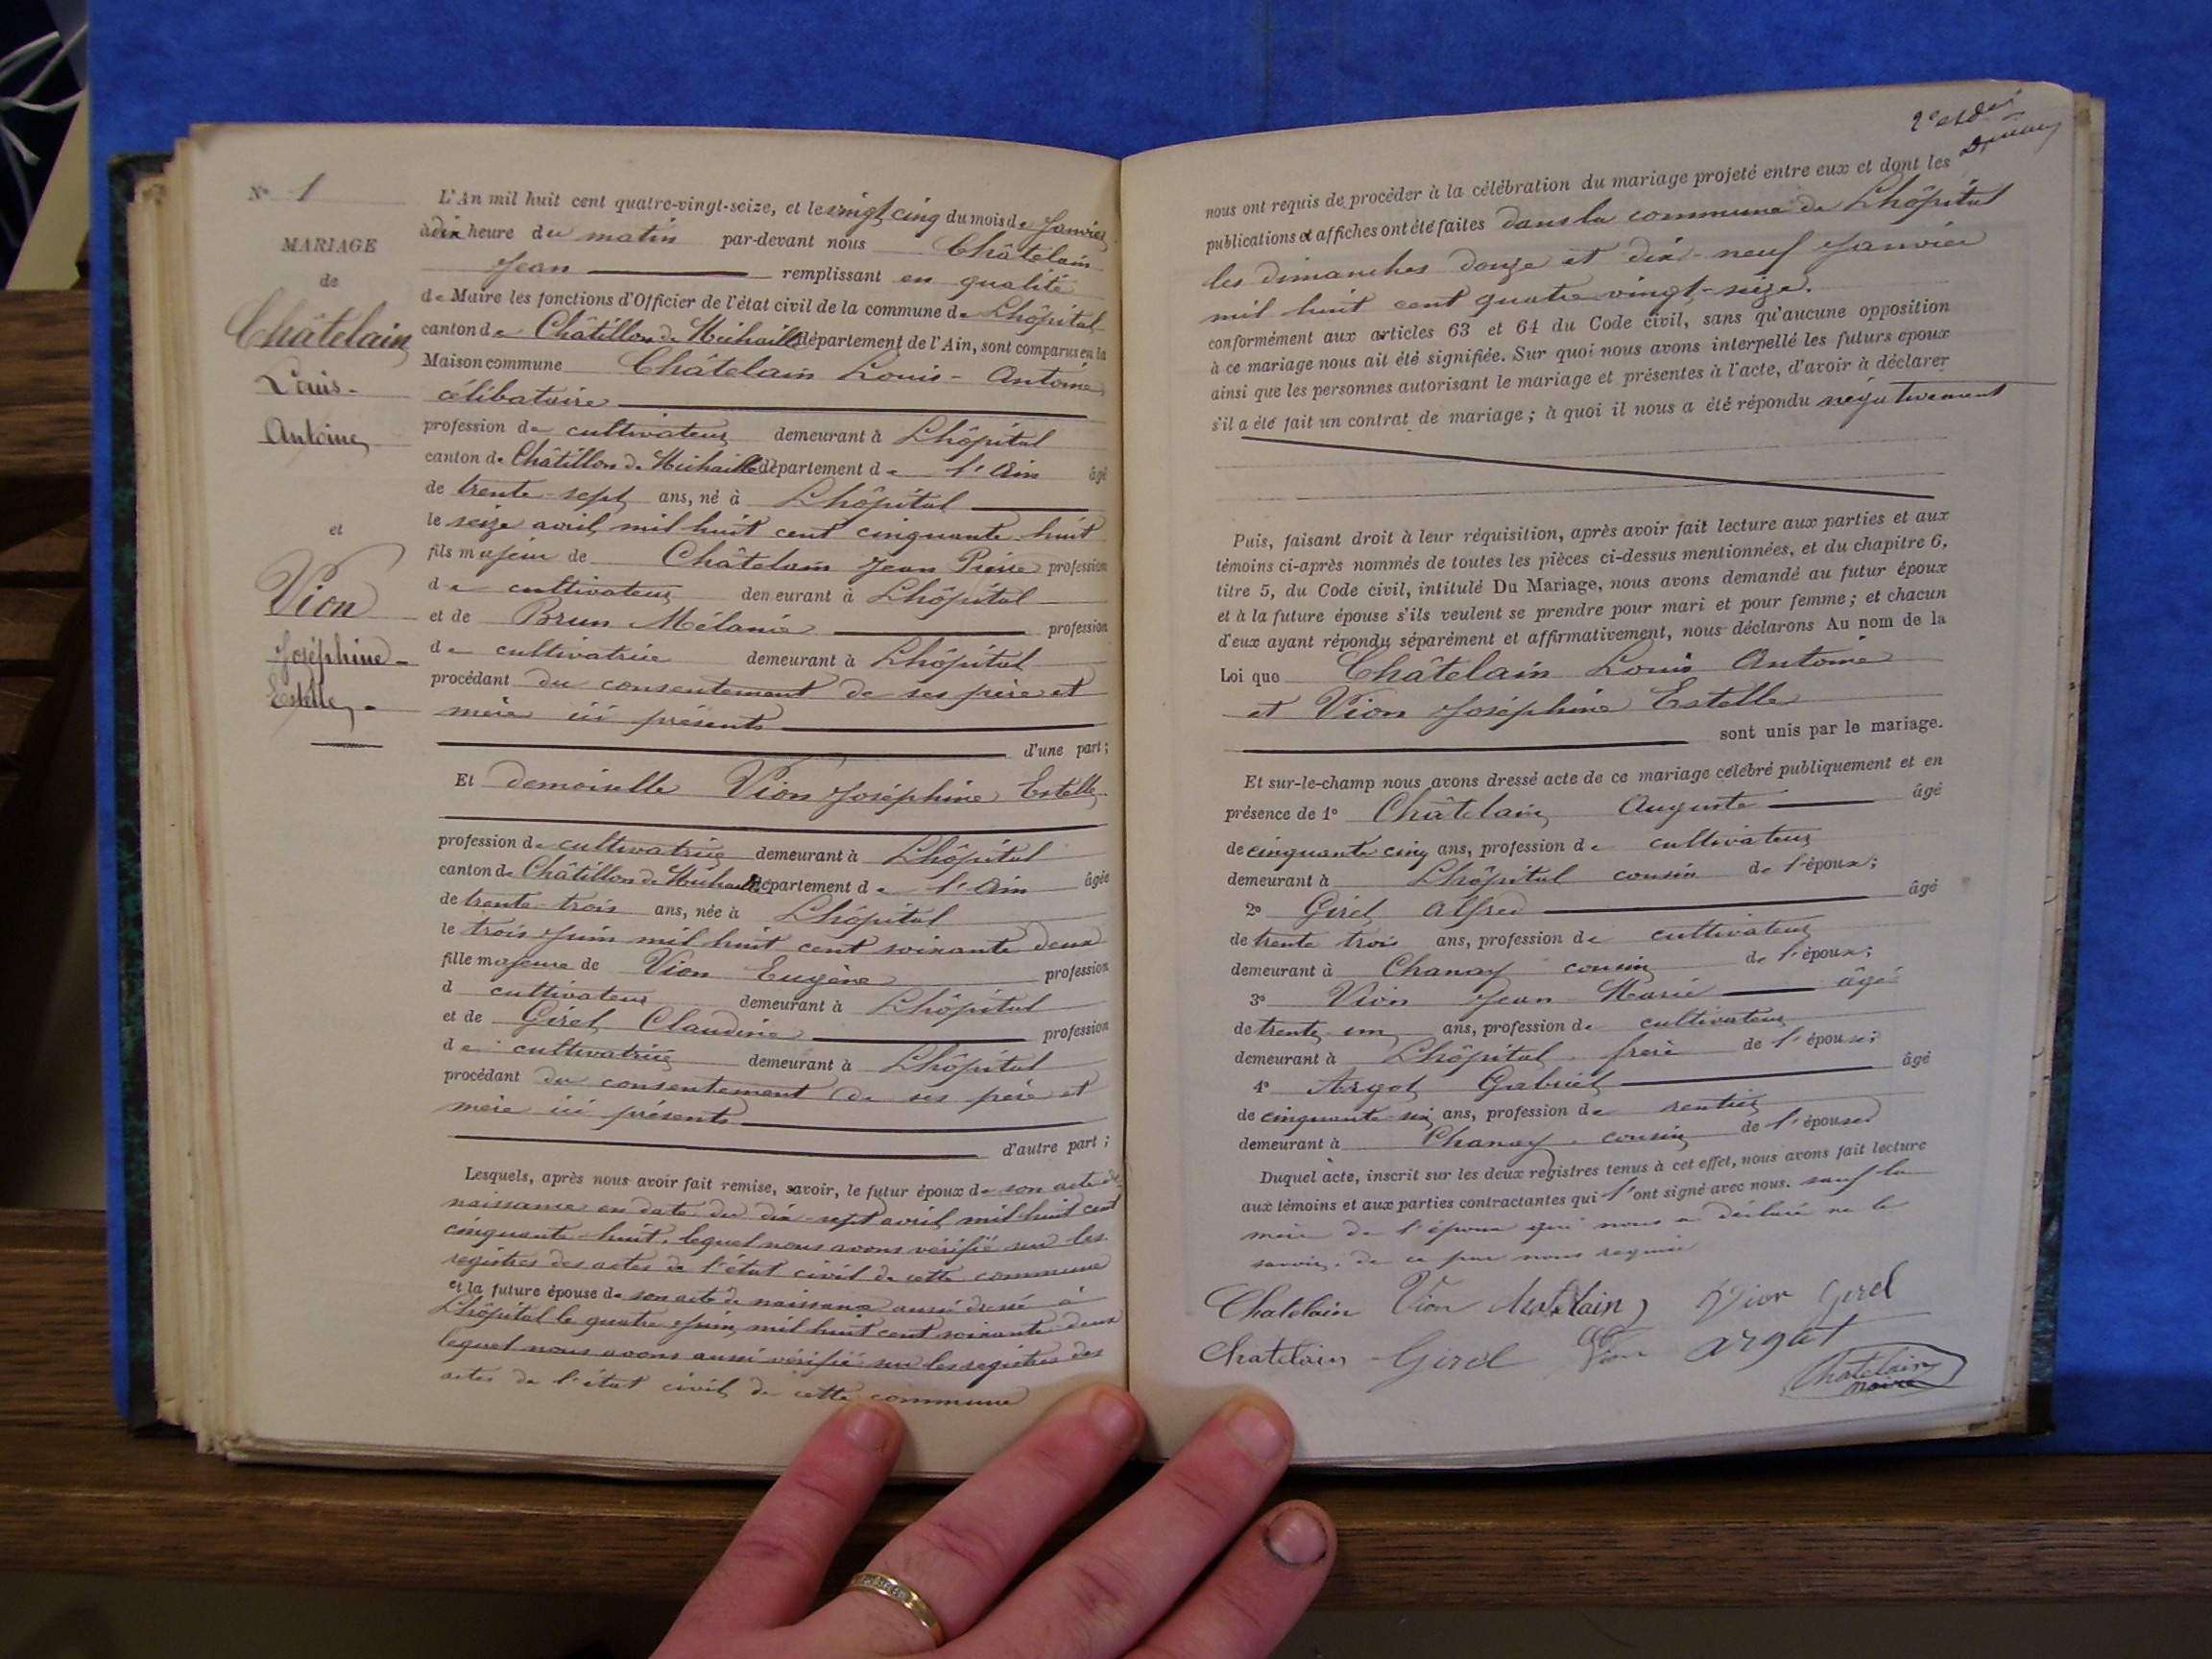 N° 1
MARIAGE
de
Châtelain
Louis-
Antoine
et
Vion
Joséphine-
Estelle
L'An mil huit cent quatre-vingt-seize, et le vingt cinq du mois de Janvier
à dix heure du matin par-devant nous Châtelain
Jean remplissant en qualité
de Maire les fonctions d'Officier de l'état civil de la commune de Lhôpital
canton de Châtillon de Michaille département de l'Ain, sont comparus en la
Maison commune Châtelain Louis-Antoine
célibataire
profession de cultivateur demeurant à Lhôpital
canton de Châtillon de Michaille département de l'Ain âgé
de trente-sept ans, né à Lhôpital
le seize avril mil huit cent cinquante huit
fils majeur de Châtelain Jean Pierre profession
de cultivateur demeurant à Lhôpital
et de Brun Mélanie profession
de cultivatrice demeurant à Lhôpital
procédant du consentement de ses père et
mère ici présents
d'une part;
Et demoiselle Vion Joséphine Estelle
profession de cultivatrice demeurant à Lhôpital
canton de Châtillon de Michaille département de l'Ain âgée
de trente-trois ans, née à Lhôpital
le trois Juin mil huit cent soixante deux
fille majeure de Vion Eugène profession
d cultivateur demeurant à Lhôpital
et de Girel Claudine profession
de cultivatrice demeurant à Lhôpital
procédant du consentement de ses père et
mère ici présents
d'autre part;
Lesquels, après nous avoir fait remise, savoir, le futur époux de son acte de
naissance en date du dix-sept avril mil huit cent
cinquante-huit, lequel nous avons vérifié sur les
registres des actes de l'état civil de cette commune
et la future épouse de son acte de naissance aussi dressé à
Lhôpital le quatre Juin mil huit cent soixante-deux
lequel nous avons aussi vérifié sur les registres des
actes de l'état civil de cette commune
nous ont requis de procéder à la célébration du mariage projeté entre eux et dont les
publications et affiches ont été faites dans la commune de Lhôpital
les dimanches douze et dix-neuf Janvier
mil huit cent quatre vingt-seize.
conformément aux articles 63 et 64 du Code civil, sans qu'aucune opposition
à ce mariage nous ait été signifiée. Sur quoi nous avons interpellé les futurs époux
ainsi que les personnes autorisant le mariage et présentes à l'acte, d'avoir à déclarer
s'il a été fait un contrat de mariage; à quoi il nous a été répondu négativement
Puis, faisant droit à leur réquisition, après avoir fait lecture aux parties et aux
témoins ci-après nommés de toutes les pièces ci-dessus mentionnées, et du chapitre 6,
titre 5, du Code civil, intitulé Du Mariage, nous avons demandé au futur époux
et à la future épouse s'ils veulent se prendre pour mari et pour femme; et chacun
d'eux ayant répondu séparément et affirmativement, nous déclarons Au nom de la
Loi que Châtelain Louis Antoine
et Vion Joséphine Estelle
sont unis par le mariage.
Et sur-le-champ nous avons dressé acte de ce mariage célébré publiquement et en
présence de 1° Châtelain Auguste âgé
de cinquante cinq ans, profession de cultivateur
demeurant à Lhôpital cousin de l'époux;
2° Girel Alfred âgé
de trente trois ans, profession de cultivateur
demeurant à Chanay cousin de l'époux;
3° Vion Jean Marie âgé
de trente un ans, profession de cultivateur
demeurant à Lhôpital frère de l'épouse;
4° Argot Gabriel âgé
de cinquante-six ans, profession de rentier
demeurant à Chanay cousin de l'épouse
Duquel acte, inscrit sur les deux registres tenus à cet effet, nous avons fait lecture
aux témoins et aux parties contractantes qui l'ont signé avec nous. sauf la
mère de l'époux qui nous a déclaré ne le
savoir, de ce par nous requise
Chatelain Vion Chatelain Vion Girel
Chatelain Girel Vion argot
Chatelain
maire